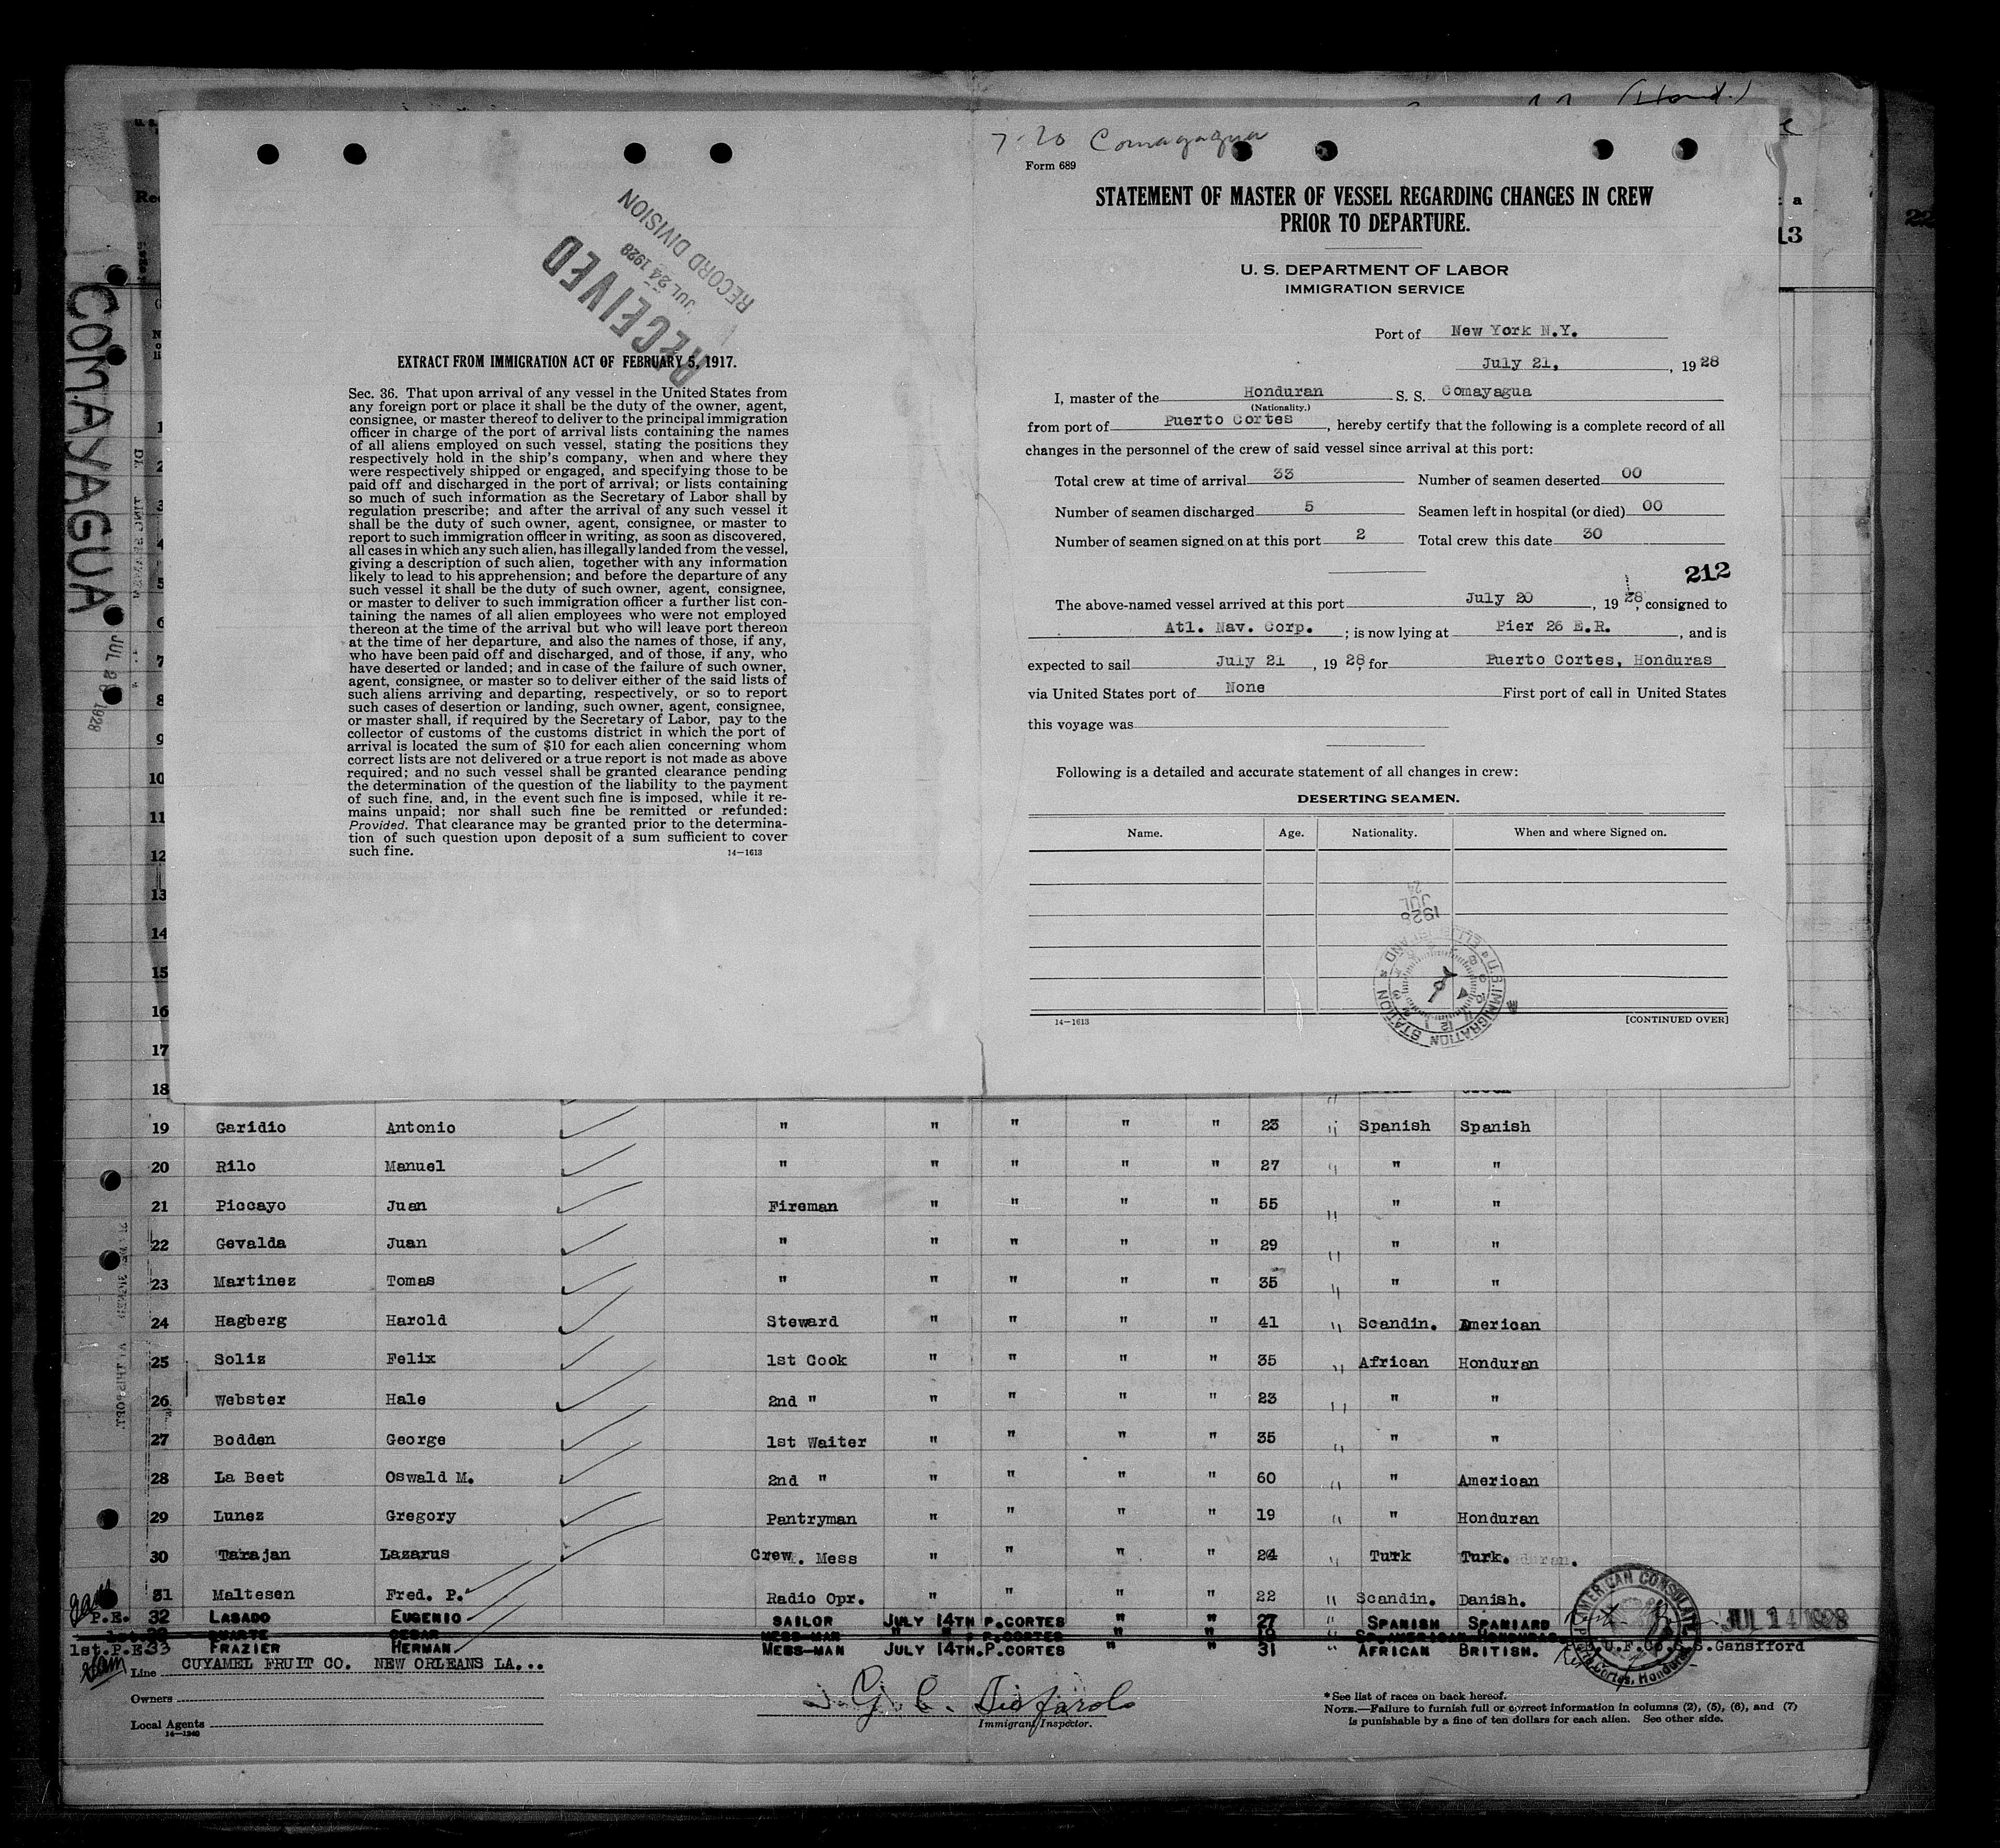 7-20 Comayagua
Form 689
STATEMENT OF MASTER OF VESSEL REGARDING CHANGES IN CREW
PRIOR TO DEPARTURE.
U. S. DEPARTMENT OF LABOR
IMMIGRATION SERVICE
Port of New York N.Y.
July 21, , 1928
I, master of the Honduran S. S. Comayagua
(Nationality.)
from port of Puerto Cortes , hereby certify that the following is a complete record of all
changes in the personnel of the crew of said vessel since arrival at this port:
Total crew at time of arrival 33 Number of seamen deserted 00
Number of seamen discharged 5 Seamen left in hospital (or died) 00
Number of seamen signed on at this port 2 Total crew this date 30
212
The above-named vessel arrived at this port July 20 , 1928, consigned to
Atl. Nav. Corp. ; is now lying at Pier 26 E.R. , and is
expected to sail July 21 , 1928, for Puerto Cortes, Honduras
via United States port of None First port of call in United States
this voyage was
Following is a detailed and accurate statement of all changes in crew:
DESERTING SEAMEN.
Name. Age. Nationality. When and where Signed on.
14—1613 [CONTINUED OVER]
U.S. IMMIGRATION STATION ELLIS ISLAND
1928 JUL 24
RECEIVED
JUL 24 1928
RECORD DIVISION
EXTRACT FROM IMMIGRATION ACT OF FEBRUARY 5, 1917.
Sec. 36. That upon arrival of any vessel in the United States from
any foreign port or place it shall be the duty of the owner, agent,
consignee, or master thereof to deliver to the principal immigration
officer in charge of the port of arrival lists containing the names
of all aliens employed on such vessel, stating the positions they
respectively hold in the ship's company, when and where they
were respectively shipped or engaged, and specifying those to be
paid off and discharged in the port of arrival; or lists containing
so much of such information as the Secretary of Labor shall by
regulation prescribe; and after the arrival of any such vessel it
shall be the duty of such owner, agent, consignee, or master to
report to such immigration officer in writing, as soon as discovered,
all cases in which any such alien, has illegally landed from the vessel,
giving a description of such alien, together with any information
likely to lead to his apprehension; and before the departure of any
such vessel it shall be the duty of such owner, agent, consignee,
or master to deliver to such immigration officer a further list con-
taining the names of all alien employees who were not employed
thereon at the time of the arrival but who will leave port thereon
at the time of her departure, and also the names of those, if any,
who have been paid off and discharged, and of those, if any, who
have deserted or landed; and in case of the failure of such owner,
agent, consignee, or master so to deliver either of the said lists of
such aliens arriving and departing, respectively, or so to report
such cases of desertion or landing, such owner, agent, consignee,
or master shall, if required by the Secretary of Labor, pay to the
collector of customs of the customs district in which the port of
arrival is located the sum of $10 for each alien concerning whom
correct lists are not delivered or a true report is not made as above
required; and no such vessel shall be granted clearance pending
the determination of the question of the liability to the payment
of such fine, and, in the event such fine is imposed, while it re-
mains unpaid; nor shall such fine be remitted or refunded:
Provided, That clearance may be granted prior to the determina-
tion of such question upon deposit of a sum sufficient to cover
such fine.
14—1613
COMAYAGUA
JUL 2 1928
(Hond.)
13
1
2
3
4
5
6
7
8
9
10
11
12
13
14
15
16
17
18
19 Garidio Antonio " " " " " 23 " Spanish Spanish
20 Rilo Manuel " " " " " 27 " " "
21 Piccayo Juan Fireman " " " " 55 " " "
22 Gevalda Juan " " " " " 29 " " "
23 Martinez Tomas " " " " " 35 " " "
24 Hagberg Harold Steward " " " " 41 " Scandin. American
25 Soliz Felix 1st Cook " " " " 35 " African Honduran
26 Webster Hale 2nd " " " " " 23 " " "
27 Bodden George 1st Waiter " " " " 35 " " "
28 La Beet Oswald M. 2nd " " " " " 60 " " American
29 Lunez Gregory Pantryman " " " " 19 " " Honduran
30 Tarajan Lazarus Crew. Mess " " " " 24 " Turk Turk.
31 Maltesen Fred. P. Radio Opr. " " " " 22 " Scandin. Danish.
P.E. 32 LASADO EUGENIO SAILOR JULY 14TH P.CORTES " " 27 " SPANISH SPANIARD
DUARTE CESAR MESS-MAN " " P.CORTES " " 19
1st.P.E 33 FRAZIER HERMAN MESS-MAN JULY 14TH.P.CORTES " " 31 " AFRICAN BRITISH.
Line CUYAMEL FRUIT CO. NEW ORLEANS LA...
Owners
Local Agents
14—1240
Immigrant Inspector.
AMERICAN CONSULATE
Puerto Cortes, Honduras
JUL 14 1928
S.Gansfford
*See list of races on back hereof.
NOTE.—Failure to furnish full or correct information in columns (2), (5), (6), and (7)
is punishable by a fine of ten dollars for each alien. See other side.